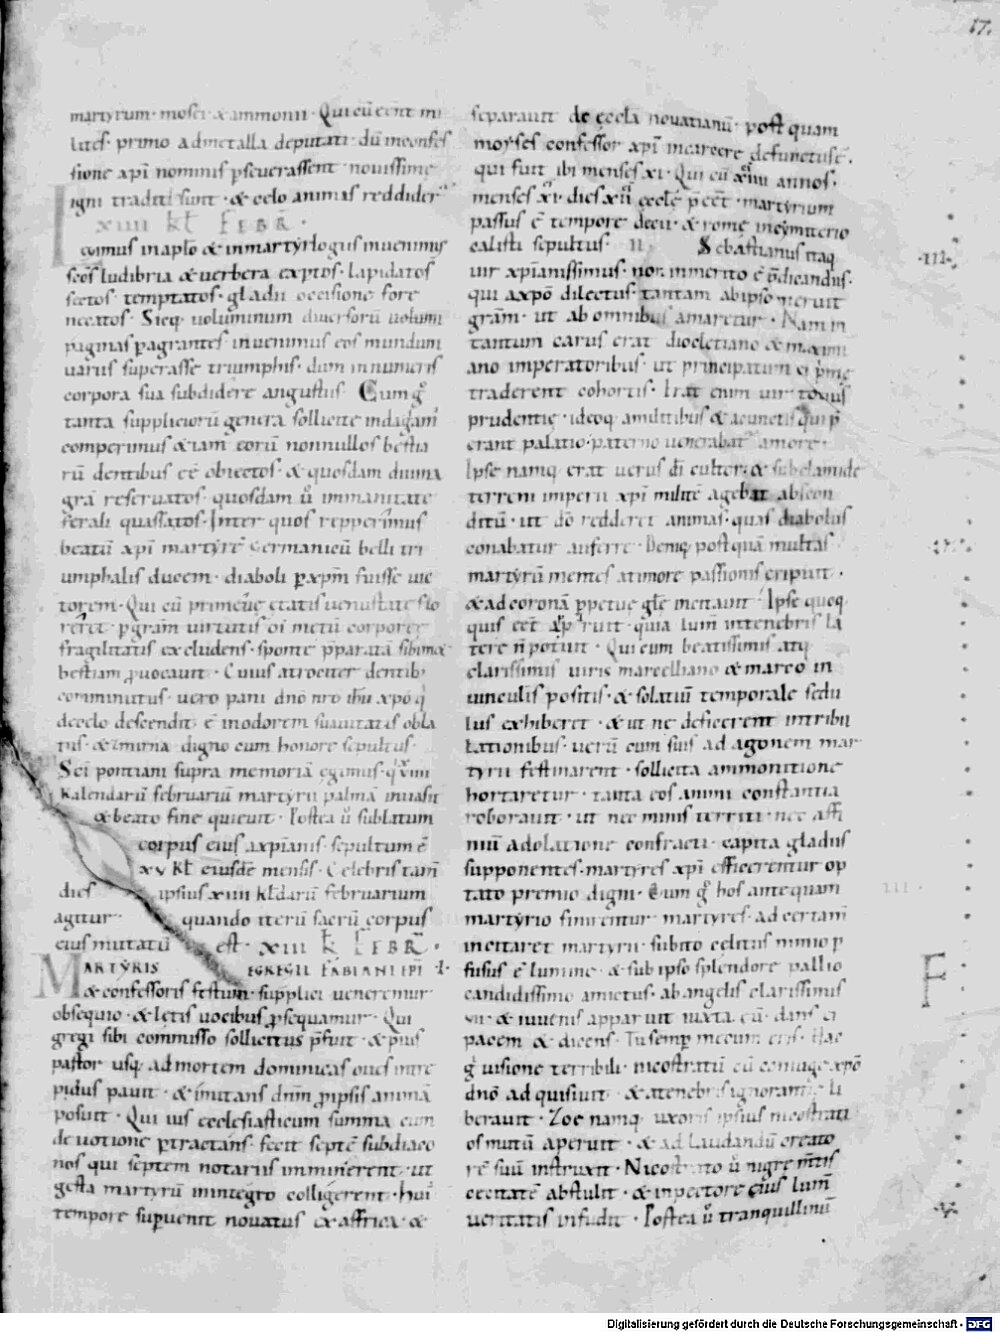 17.
martyrum · mosei · & ammonii · Qui cū eēnt mi
lites · primo ad metalla deputati · dū in confes
sione xp̄i nominis p̄severassent novissime
igni traditi sunt · & celo animas reddider̄
XIIII KŁ FEBR̄ ·
Legimus in aplō & in martyrlogiis invenimus
sc̄os ludibria & verbera exptos · lapidatos
sectos · temptatos · gladii occisione fore
necatos · Sicq volūminum diversorū volumi
paginas pagrantes invenimus eos mundum
varus superasse triumphis · dum innumeris
corpora sua subdidere angustus · Cum g̊
tanta suppliciorū genera sollicite indagam̄
comperimus & iam eorū nonnullos bestia
rū dentibus eē obiectos · & quosdam divina
grā reservatos · quosdam ů immanitate
ferali quassatos · Inter quos repperimus
beatū xp̄i martyrē Germanicū belli tri
umphalis ducem · diaboli p̄ xp̄m fuisse vic
torem · Qui cū primeve etatis venustate flo
reret · p grām virtutis oī metū corporee
fragilitatis excludens · sponte p̄parata sibimet
bestiam p̄vocavit · Cuius atrociter dentib;
comminutus · vero pani dnō nrō ihū xp̄o q̇
de celo descendit · ē in odorem suavitatis obla
tus · & zmirna digno cum honore sepultus ·
Sc̄i pontiani supra memoriā egimus · q̇ xiiii
kalendarū februariū martyrii palmā invasit
& beato fine quievit · Postea ů sublatum
corpus eius a xpianis · sepultum ē
xv kł eiusdē mensis · Celebris tam̄
dies ipsius xiiii kłdarū februarium
agitur · quando iterū sacrū corpus
eius mutatū est · XIII KŁ FEBR̄ ·
MARTYRIS EGREGII FABIANI EP̄I · I ·
& confessoris festum · supplici veneremur
obsequio · & letis vocibus p̄sequamur · Qui
gregi sibi commisso sollicitus p̄fuit · & pius
pastor usq ad mortem dominicas oves intre
pidus pavit · & imitans dn̄m p̄ ipsis animā
posuit · Qui ius ecclesiasticum summa cum
devotione ptractans · fecit septē subdiaco
nos qui septem notariis imminerent · ut
gesta martyrū in integro colligerent · hui᾿
tempore supvenit novatus ex affrica · &
separavit de eccla novatianū · post quam
moyses confessor xp̄i in carcere defunctus ē ·
qui fuit ibi menses xi · Qui cū xiiii annos ·
menses xi · dies xii eccle p̄eēt · martyrium
passus ē tempore decii · & rome in cymiterio
calisti sepultus · II · Sebastianus itaq
vir xpianissimus · non inmerito ē p̄dicandus ·
qui a xpō dilectus · tantam ab ipso meruit
grām · ut ab omnibus amaretur · Nam in
tantum carus erat diocletiano & maximi
ano imperatoribus · ut principatum ei prime
traderent cohortis · Erat enim vir totius
prudentie · ideoq a militibus & a cunctis qui p̄
erant palatio · paterno venerabat᾿ amore ·
Ipse namq erat verus dī cultor · & sub clamide
terreni imperii xp̄i militē agebat abscon
ditū · ut dō redderet animas · quas diabolus
conabatur auferre · Deniq postquā multas
martyrū mentes a timore passionis eripuit ·
& ad coronā p̄petue gle incitavit · Ipse quoq
quis eēt apparuit · quia lum̄ in tenebris la
tere n̄ potuit · Qui cum beatissimis atq
clarissimis viris marcelliano & marco in
vinculis positis · & solatiū temporale sedu
lus exhiberet · & ut ne deficerent in tribu
lationibus · verū cum suis ad agonem mar
tyrii festinarent · sollicita ammonitione
hortaretur · tanta eos animi constantia
roboravit · ut nec minis territi · nec affi
niū adolatione confracti · capita gladiis
supponentes · martyres xp̄i efficerentur op
tato premio digni · Cum g̊ hos antequam
martyrio finirentur martyres · ad certam̄
incitaret martyrii · subito celitus nimio p̄
fusus ē lumine · & sub ipso splendore pallio
candidissimo amictus · ab angelis clarissimis
vii · & iuvenis apparuit iuxta eū · dans ei
pacem & dicens · Tu semp mecum eris · Hac
g̊ visione terribili · nicostratū cū coniuge xpō
dnō adquisivit · & a tenebris ignorantie li
beravit · Zoe namq uxoris ipsius nicostrati
os mutū aperuit · & ad laudandū creato
rē suū instruxit · Nicostrato ů nigre m̄tis
cecitatē abstulit · & in pectore eius lum̄
veritatis infudit · Postea ů tranquillinū
· III ·
III ·
F
Digitalisierung gefördert durch die Deutsche Forschungsgemeinschaft - DFG